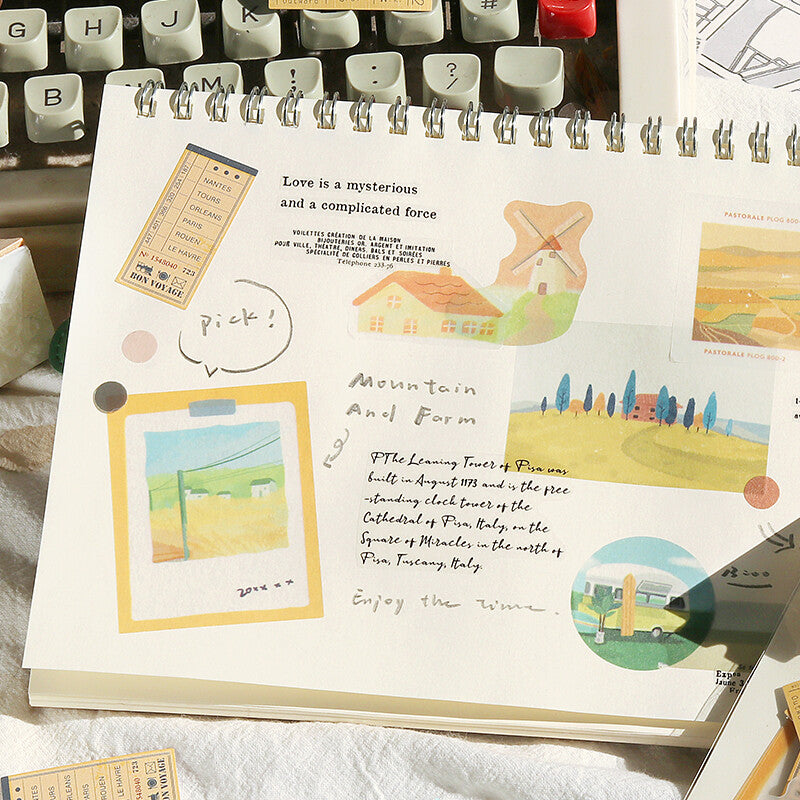 G
H
J
K
#
B
N
M
!
:
?
NANTES
TOURS
ORLEANS
PARIS
ROUEN
LE HAVRE
Nº 1548040 723
BON VOYAGE
Love is a mysterious
and a complicated force
VOILETTES CRÉATION DE LA MAISON
BIJOUTERIES OR, ARGENT ET IMITATION
POUR VILLE, THÉATRE, DINERS, BALS ET SOIRÉES
SPÉCIALITÉ DE COLLIERS EN PERLES ET PIERRES
Téléphone 233-76
PASTORALE PLOG 800
PASTORALE PLOG 800-2
pick!
Mountain
And Farm
PThe Leaning Tower of Pisa was
built in August 1173 and is the free
-standing clock tower of the
Cathedral of Pisa, Italy, on the
Square of Miracles in the north of
Pisa, Tuscany, Italy.
20xx x x
Enjoy the time.
Jaune 3
ORLEANS
PARIS
ROUEN
LE HAVRE
1548040 723
BON VOYAGE